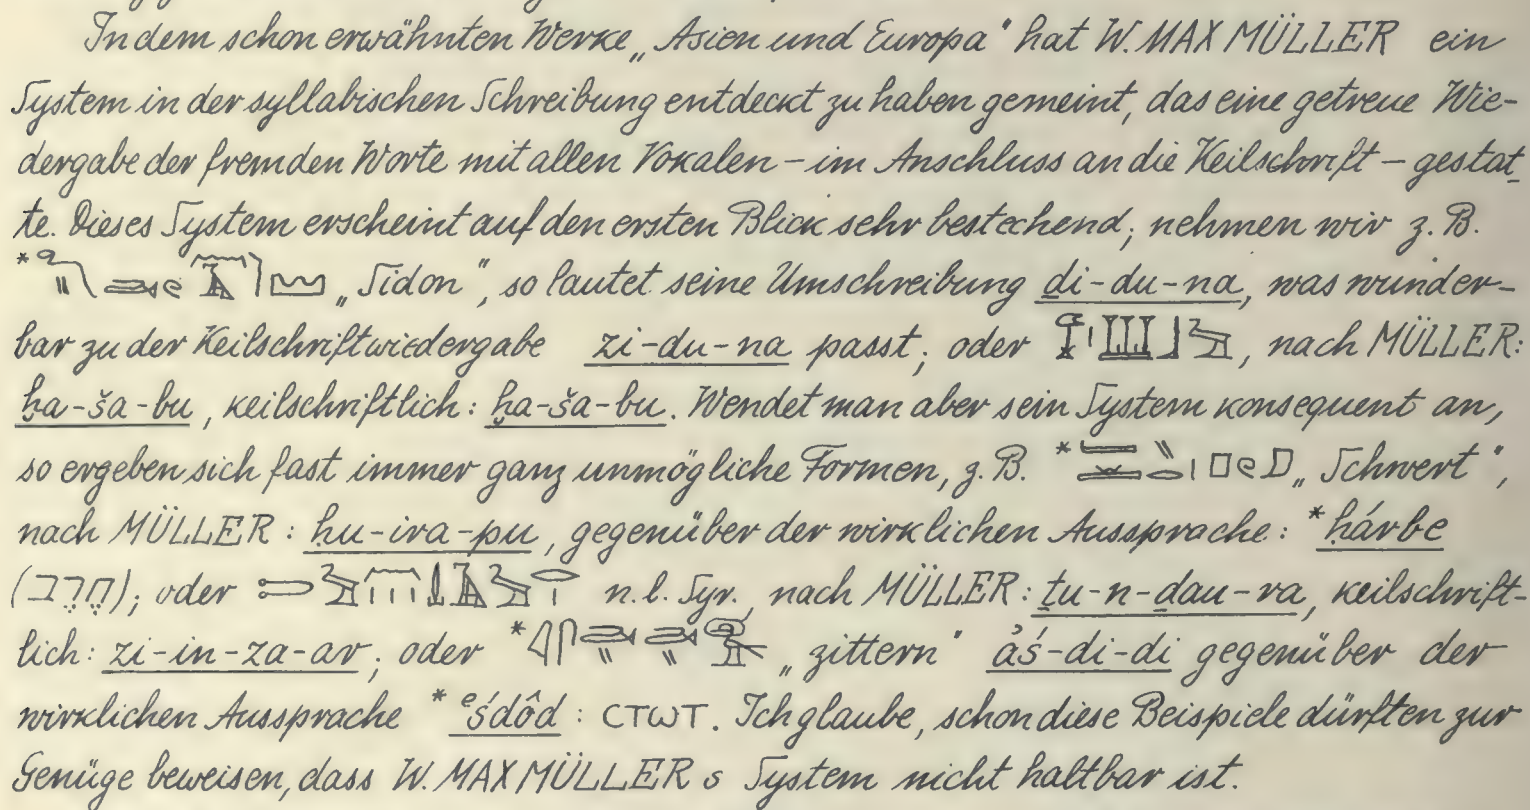 In dem schon erwähnten Werke „Asien und Europa“ hat W. MAX MÜLLER ein
System in der syllabischen Schreibung entdeckt zu haben gemeint, das eine getreue Wie-
dergabe der fremden Worte mit allen Vokalen – im Anschluss an die Keilschrift – gestat-
te. Dieses System erscheint auf den ersten Blick sehr bestechend; nehmen wir z. B.
* „Sidon“, so lautet seine Umschreibung ḏi-du-na, was wunder-
bar zu der Keilschriftwiedergabe zi-du-na passt; oder , nach MÜLLER:
ḫa-ša-bu, keilschriftlich: ḫa-ša-bu. Wendet man aber sein System konsequent an,
so ergeben sich fast immer ganz unmögliche Formen, z. B. * „Schwert“,
nach MÜLLER: ḫu-ira-pu, gegenüber der wirklichen Aussprache: *ḥárbe
(חֶרֶב); oder n. l. Syr., nach MÜLLER: ṯu-n-ḏau-ra, keilschrift-
lich: zi-in-za-ar; oder * „zittern“ ȧś-di-di gegenüber der
wirklichen Aussprache *ᵉśdôd : ⲥⲧⲱⲧ. Ich glaube, schon diese Beispiele dürften zur
Genüge beweisen, dass W. MAX MÜLLERs System nicht haltbar ist.